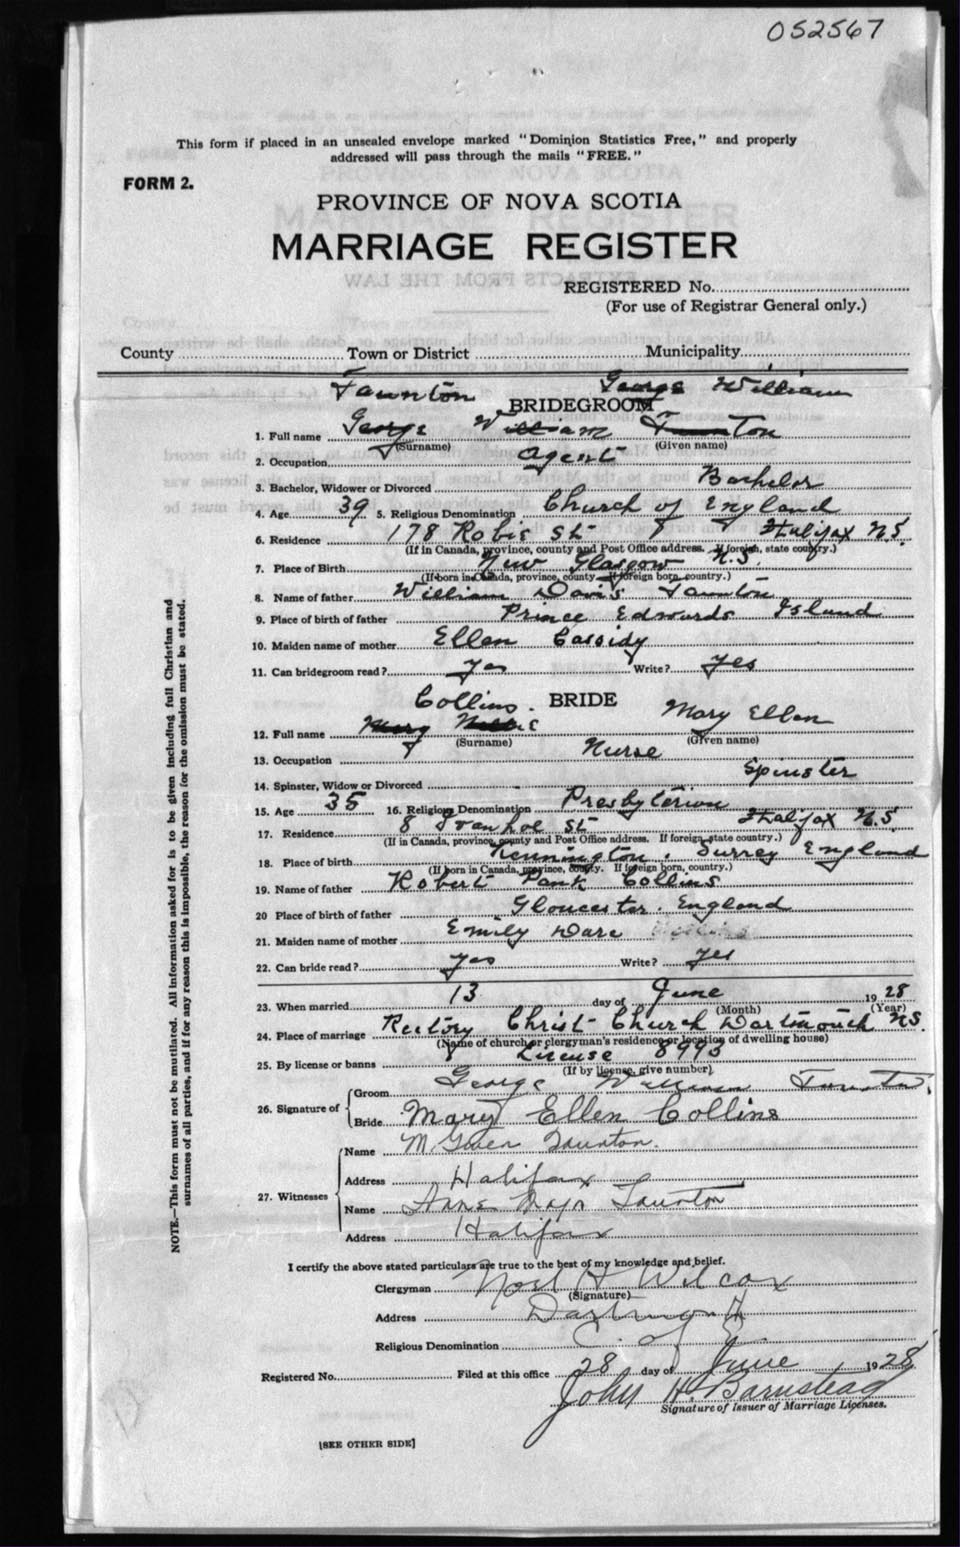 052567
This form if placed in an unsealed envelope marked "Dominion Statistics Free," and properly
addressed will pass through the mails "FREE."
FORM 2.
PROVINCE OF NOVA SCOTIA
MARRIAGE REGISTER
EXTRACTS FROM THE LAW
REGISTERED No.
(For use of Registrar General only.)
County Town or District Municipality
Taunton George William
BRIDEGROOM
1. Full name George William Taunton
(Surname) (Given name)
2. Occupation Agent
3. Bachelor, Widower or Divorced Bachelor
4. Age 39 5. Religious Denomination Church of England
6. Residence 178 Robie St Halifax N.S.
(If in Canada, province, county and Post Office address. If foreign, state country.)
7. Place of Birth New Glasgow N.S.
(If born in Canada, province, county. If foreign born, country.)
8. Name of father William Davis Taunton
9. Place of birth of father Prince Edwards Island
10. Maiden name of mother Ellen Cassidy
11. Can bridegroom read? yes Write? yes
Collins. BRIDE Mary Ellen
12. Full name Mary Nellie
(Surname) (Given name)
13. Occupation Nurse
14. Spinster, Widow or Divorced Spinster
15. Age 35 16. Religious Denomination Presbyterion
17. Residence 8 Ivanhoe St Halifax N.S.
(If in Canada, province, county and Post Office address. If foreign, state country.)
18. Place of birth Kennington, Surrey England
(If born in Canada, province, county. If foreign born, country.)
19. Name of father Robert Pank Collins
20 Place of birth of father Gloucester England
21. Maiden name of mother Emily Dare
22. Can bride read? yes Write? yes
23. When married 13 day of June 1928
(Month) (Year)
24. Place of marriage Rectory Christ Church Dartmouth N.S.
(Name of church or clergyman's residence or location of dwelling house)
25. By license or banns License 8993
(If by license, give number)
26. Signature of Groom George William Taunton
Bride Mary Ellen Collins
27. Witnesses Name M. Gwen Taunton.
Address Halifax
Name Anne Taunton
Address Halifax
I certify the above stated particulars are true to the best of my knowledge and belief.
Clergyman Noel H Wilcox
(Signature)
Address Dartmouth
Religious Denomination C. of E.
Registered No. Filed at this office 28 day of June 1928
John H. Barnstead
Signature of Issuer of Marriage Licenses.
[SEE OTHER SIDE]
NOTE.—This form must not be mutilated. All information asked for is to be given including full Christian and
surnames of all parties, and if for any reason this is impossible, the reason for the omission must be stated.